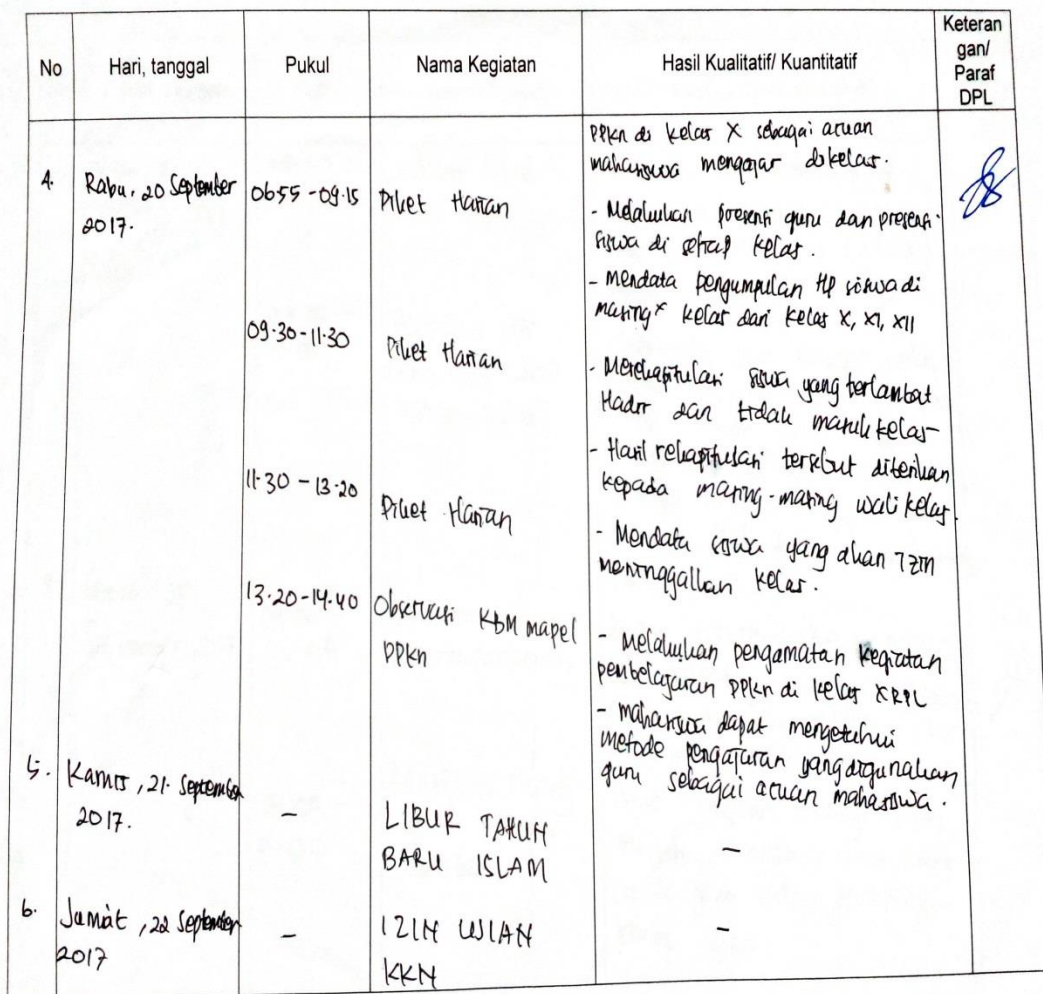 No Hari, tanggal Pukul Nama Kegiatan Hasil Kualitatif/ Kuantitatif Keteran
gan/
Paraf
DPL
PPKn di kelas X sebagai acuan
mahasiswa mengajar dikelas.
4. Rabu, 20 September
2017.
0655 - 09.15 Piket Harian
- Melakukan presensi guru dan presensi
siswa di setiap kelas.
- Mendata pengumpulan HP siswa di
masing× kelas dari kelas X, XI, XII
09.30-11.30 Piket Harian
- Merekapitulasi siswa yang terlambat
Hadir dan tidak masuk kelas-
- Hasil rekapitulasi tersebut diberikan
kepada masing-masing wali kelas.
11.30 - 13.20 Piket Harian
- Mendata siswa yang akan izin
meninggalkan kelas.
13.20-14.40 Observasi KBM mapel
PPKn
- Melakukan pengamatan kegiatan
pembelajaran PPKn di kelas X RPL
- mahasiswa dapat mengetahui
metode pengajaran yang digunakan
guru sebagai acuan mahasiswa.
5. Kamis, 21. September
2017.
-
LIBUR TAHUN
BARU ISLAM
-
6. Jumat, 22 September
2017
-
IZIN UJIAN
KKN
-